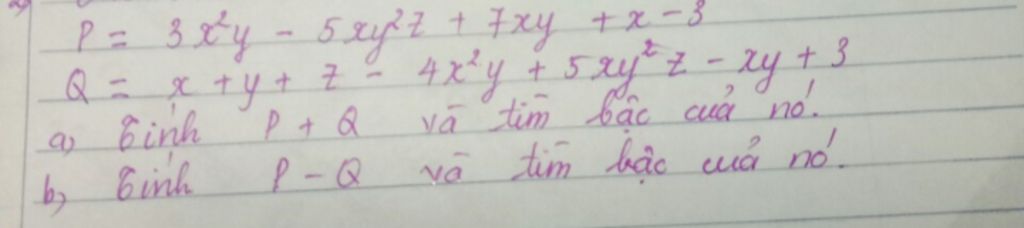 P = 3x²y - 5xy²z + 7xy + x - 3
Q = x + y + z - 4x²y + 5xy²z - xy + 3
a, Tính P + Q và tìm bậc của nó.
b, Tính P - Q và tìm bậc của nó.